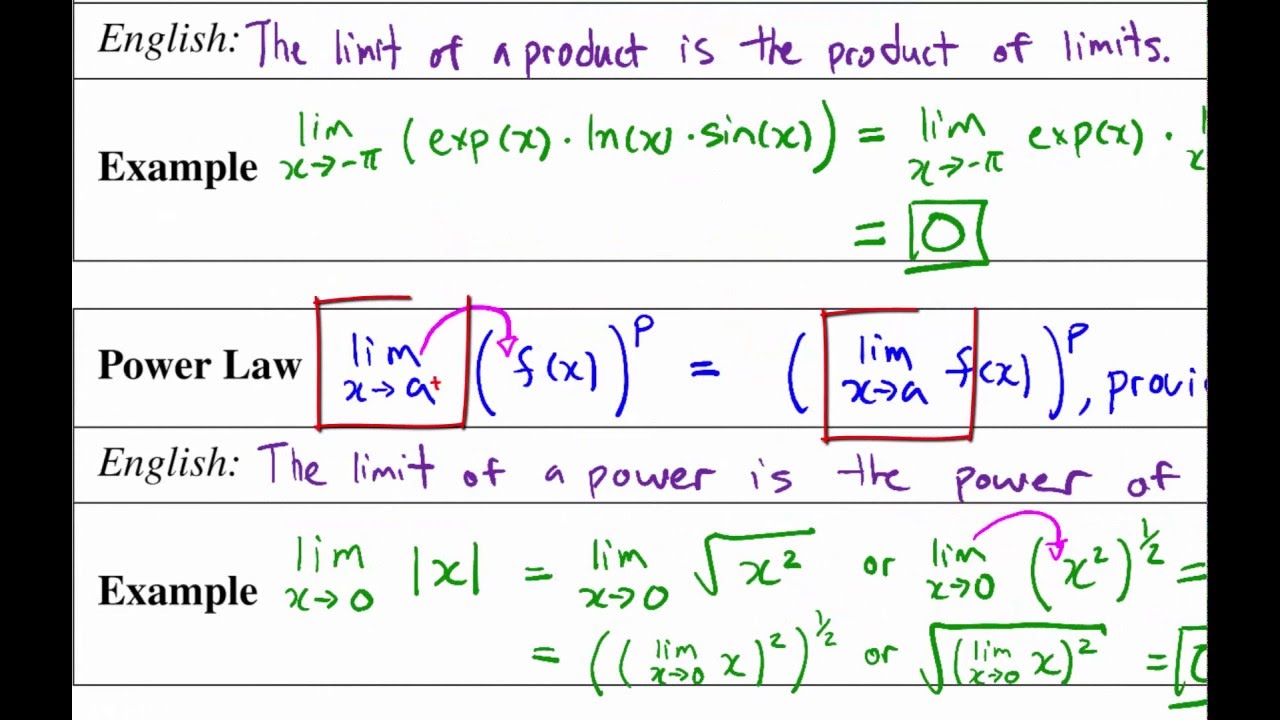 English: The limit of a product is the product of limits.
Example lim x→-π (exp(x) · ln(x) · sin(x)) = lim x→-π exp(x) ·
= 0
Power Law lim x→a+ (f(x))^p = (lim x→a f(x))^p, provi
English: The limit of a power is the power of
Example lim x→0 |x| = lim x→0 √x² or lim x→0 (x²)^½ =
= ((lim x→0 x)²)^½ or √(lim x→0 x)² = 0